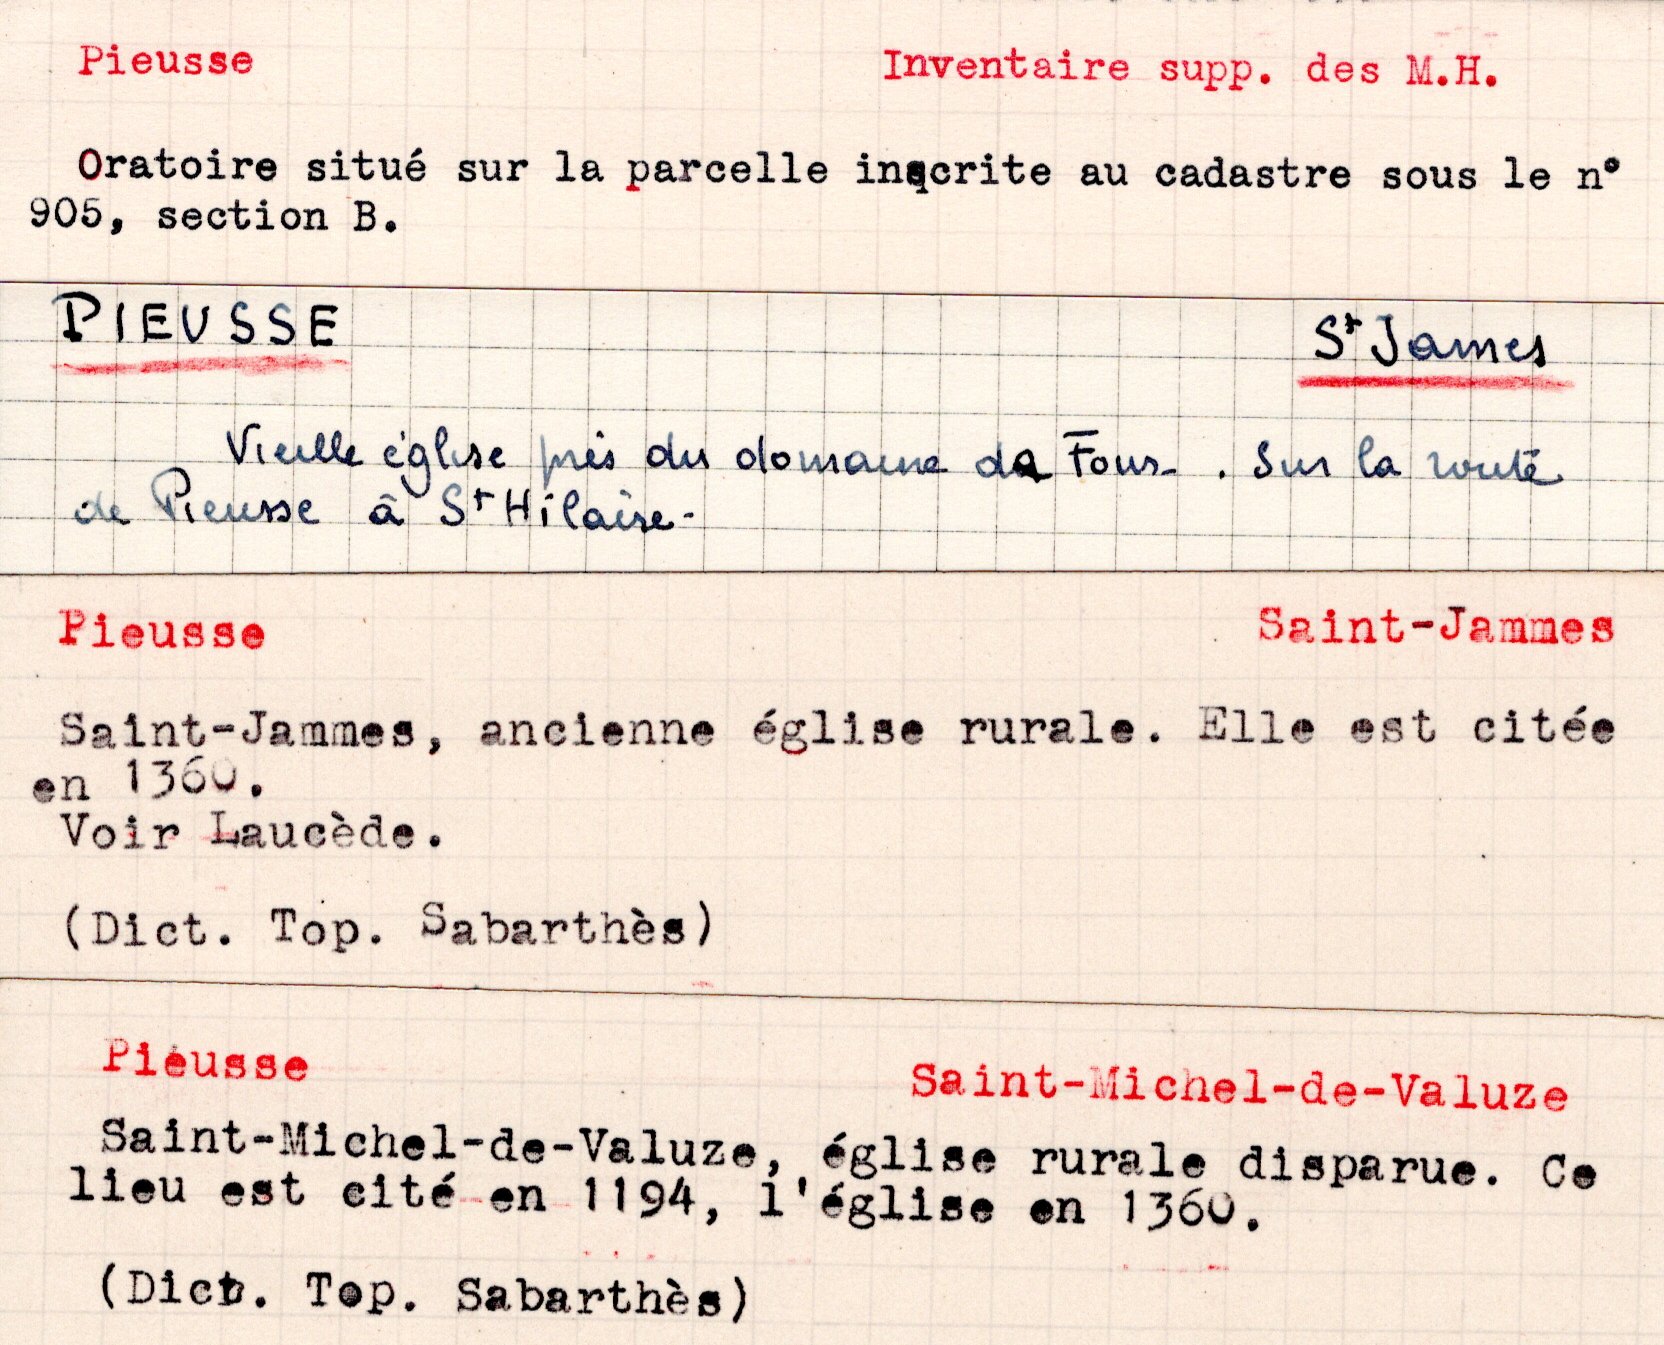 Pieusse Inventaire supp. des M.H.
Oratoire situé sur la parcelle inscrite au cadastre sous le n°
905, section B.
PIEUSSE St James
Vieille église près du domaine de Fours. Sur la route
de Pieusse à St Hilaire.
Pieusse Saint-Jammes
Saint-Jammes, ancienne église rurale. Elle est citée
en 1360.
Voir Laucède.
(Dict. Top. Sabarthès)
Pieusse Saint-Michel-de-Valuze
Saint-Michel-de-Valuze, église rurale disparue. Ce
lieu est cité en 1194, l'église en 1360.
(Dict. Top. Sabarthès)